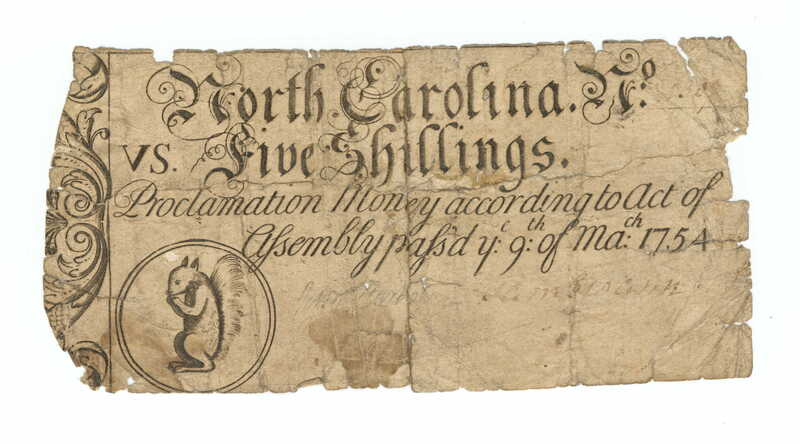 North Carolina. Nº.
VS. Five Shillings.
Proclamation Money according to Act of
Assembly pass'd yᵉ: 9ᵗʰ: of Maᶜʰ: 1754